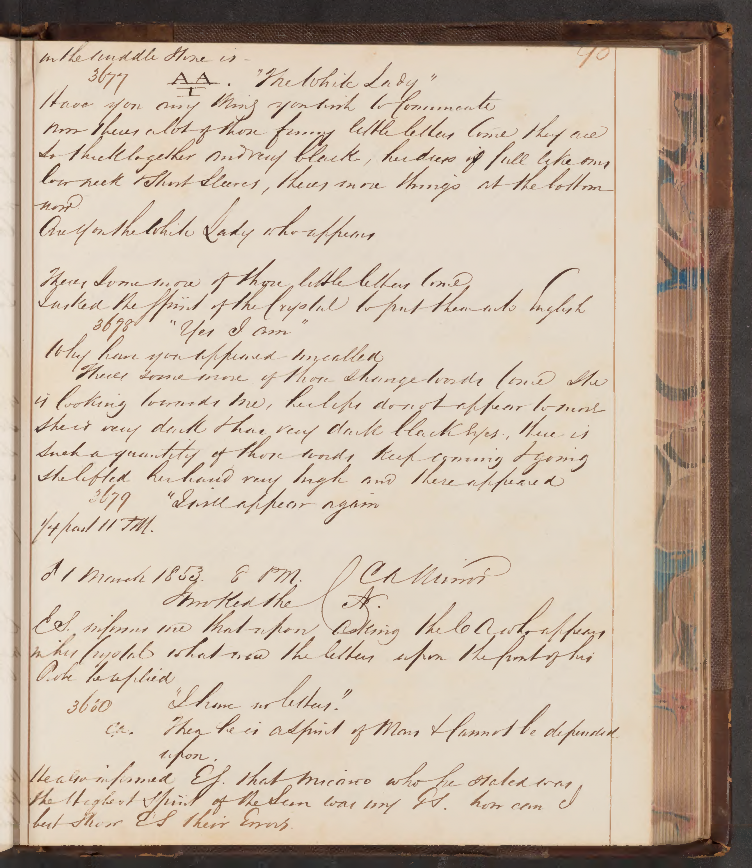 in the middle stone is
40
3677 A A . "The White Lady"
I
Have you any thing you wish to Communicate
now theres a lot of those funny little letters Come they are
so thick together and very black, her dress is full like ones
low neck & Short Sleeves, theres more things at the bottom
now
Are you the White Lady who appears
Theres some more of those little letters Come
I asked the Spirit of the Crystal to put them into English
3678 "Yes I am"
Why have you appeared uncalled
Theres some more of those strange words Come She
is looking towards me, her lips do not appear to move
she is very dark & has very dark black Eyes, there is
such a quantity of those words keep coming & going
she lifted her hand very high and there appeared
3679 "I will appear again
1/4 past 11 P.M.
1 March 1853. 8 P.M. CA Mirror
Invoked the A.
E.S. informs me that upon asking the C A who appears
in his Crystal what were the letters upon the front of his
Robe he replied
3680 "I have no letters."
C.A. Then he is a Spirit of Mars & Cannot be depended
upon.
He also informed ES. that who he stated was
the Highest Spirit of the Sun was my GS. how can I
but show ES their Errors.